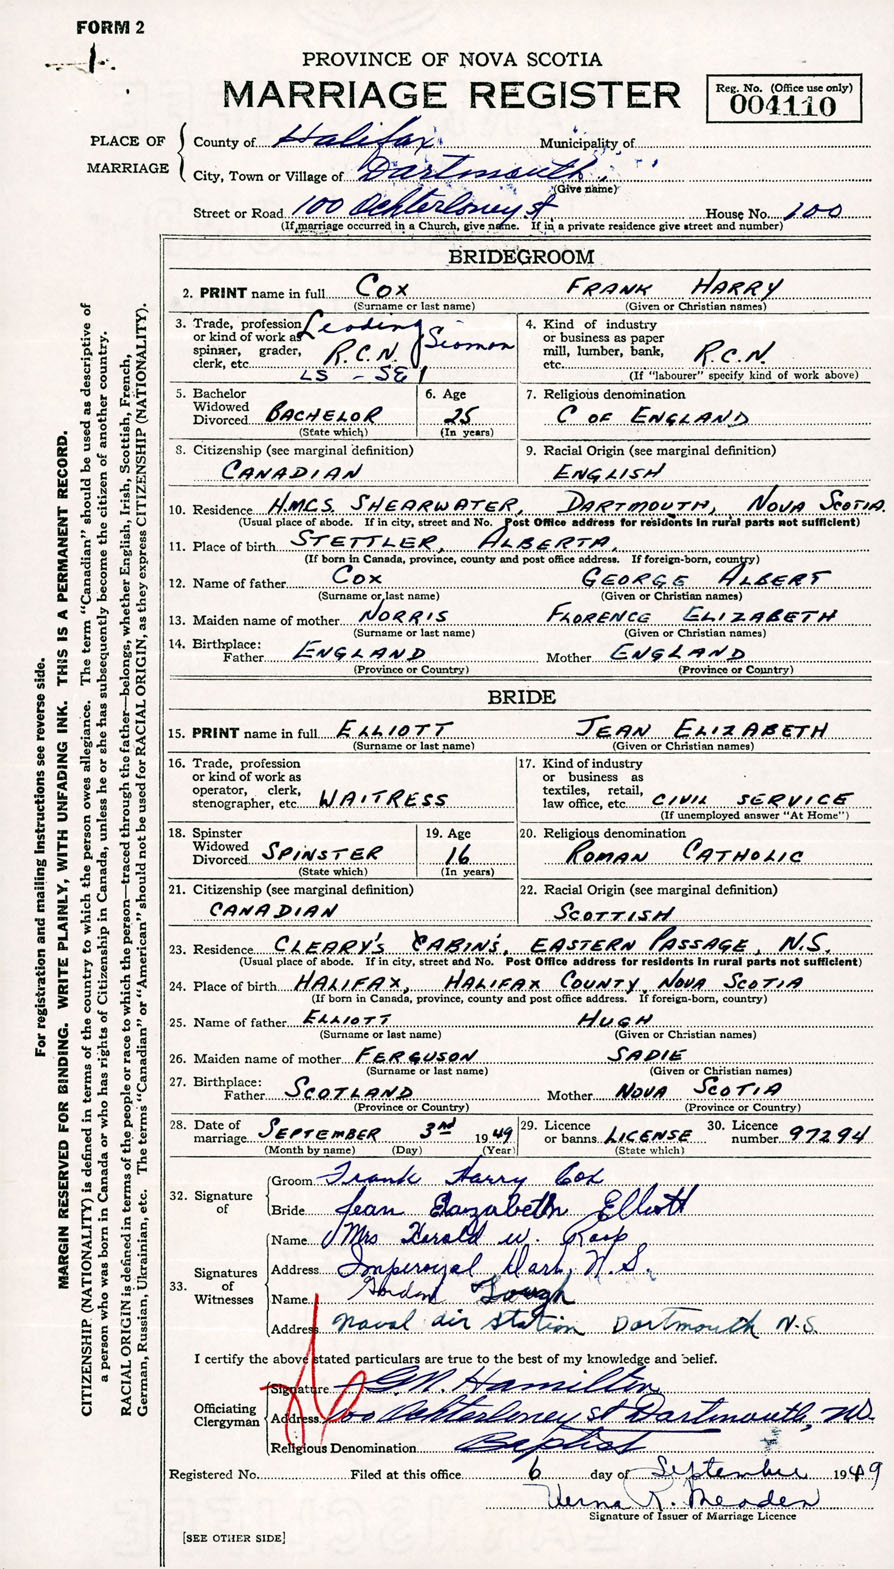 FORM 2
PROVINCE OF NOVA SCOTIA
MARRIAGE REGISTER
Reg. No. (Office use only)
004110
PLACE OF MARRIAGE
County of Halifax Municipality of
City, Town or Village of Dartmouth
(Give name)
Street or Road 100 Ochterloney St House No. 100
(If marriage occurred in a Church, give name. If in a private residence give street and number)
BRIDEGROOM
2. PRINT name in full COX FRANK HARRY
(Surname or last name) (Given or Christian names)
3. Trade, profession or kind of work as spinner, grader, clerk, etc. Leading Seaman R.C.N.
LS - SE 1
4. Kind of industry or business as paper mill, lumber, bank, etc. R.C.N.
(If "labourer" specify kind of work above)
5. Bachelor Widowed Divorced BACHELOR
(State which)
6. Age 25
(In years)
7. Religious denomination
C OF ENGLAND
8. Citizenship (see marginal definition)
CANADIAN
9. Racial Origin (see marginal definition)
ENGLISH
10. Residence H.M.C.S. SHEARWATER, DARTMOUTH, NOVA SCOTIA.
(Usual place of abode. If in city, street and No. Post Office address for residents in rural parts not sufficient)
11. Place of birth STETTLER, ALBERTA.
(If born in Canada, province, county and post office address. If foreign-born, country)
12. Name of father COX GEORGE ALBERT
(Surname or last name) (Given or Christian names)
13. Maiden name of mother NORRIS FLORENCE ELIZABETH
(Surname or last name) (Given or Christian names)
14. Birthplace:
Father ENGLAND Mother ENGLAND
(Province or Country) (Province or Country)
BRIDE
15. PRINT name in full ELLIOTT JEAN ELIZABETH
(Surname or last name) (Given or Christian names)
16. Trade, profession or kind of work as operator, clerk, stenographer, etc. WAITRESS
17. Kind of industry or business as textiles, retail, law office, etc. CIVIL SERVICE
(If unemployed answer "At Home")
18. Spinster Widowed Divorced SPINSTER
(State which)
19. Age 16
(In years)
20. Religious denomination
ROMAN CATHOLIC
21. Citizenship (see marginal definition)
CANADIAN
22. Racial Origin (see marginal definition)
SCOTTISH
23. Residence CLEARY'S CABINS, EASTERN PASSAGE, N.S.
(Usual place of abode. If in city, street and No. Post Office address for residents in rural parts not sufficient)
24. Place of birth HALIFAX, HALIFAX COUNTY, NOVA SCOTIA
(If born in Canada, province, county and post office address. If foreign-born, country)
25. Name of father ELLIOTT HUGH
(Surname or last name) (Given or Christian names)
26. Maiden name of mother FERGUSON SADIE
(Surname or last name) (Given or Christian names)
27. Birthplace:
Father SCOTLAND Mother NOVA SCOTIA
(Province or Country) (Province or Country)
28. Date of marriage SEPTEMBER 3RD 1949
(Month by name) (Day) (Year)
29. Licence or banns LICENSE
(State which)
30. Licence number 97294
32. Signature of
Groom Frank Harry Cox
Bride Jean Elizabeth Elliott
33. Signatures of Witnesses
Name Mrs Harold W. Roop
Address Imperoyal Dart. N.S.
Name Gordon Gough
Address Naval air Station Dartmouth N.S.
I certify the above stated particulars are true to the best of my knowledge and belief.
Officiating Clergyman
Signature G.N. Hamilton
Address 100 Ochterloney St Dartmouth, NS.
Religious Denomination Baptist
Registered No. Filed at this office 6 day of September 1949
Verna R. Meaden
Signature of Issuer of Marriage Licence
[SEE OTHER SIDE]
For registration and mailing instructions see reverse side.
MARGIN RESERVED FOR BINDING. WRITE PLAINLY, WITH UNFADING INK. THIS IS A PERMANENT RECORD.
CITIZENSHIP (NATIONALITY) is defined in terms of the country to which the person owes allegiance. The term "Canadian" should be used as descriptive of
a person who was born in Canada or who has rights of Citizenship in Canada, unless he or she has subsequently become the citizen of another country.
RACIAL ORIGIN is defined in terms of the people or race to which the person—traced through the father—belongs, whether English, Irish, Scottish, French,
German, Russian, Ukrainian, etc. The terms "Canadian" or "American" should not be used for RACIAL ORIGIN, as they express CITIZENSHIP (NATIONALITY).